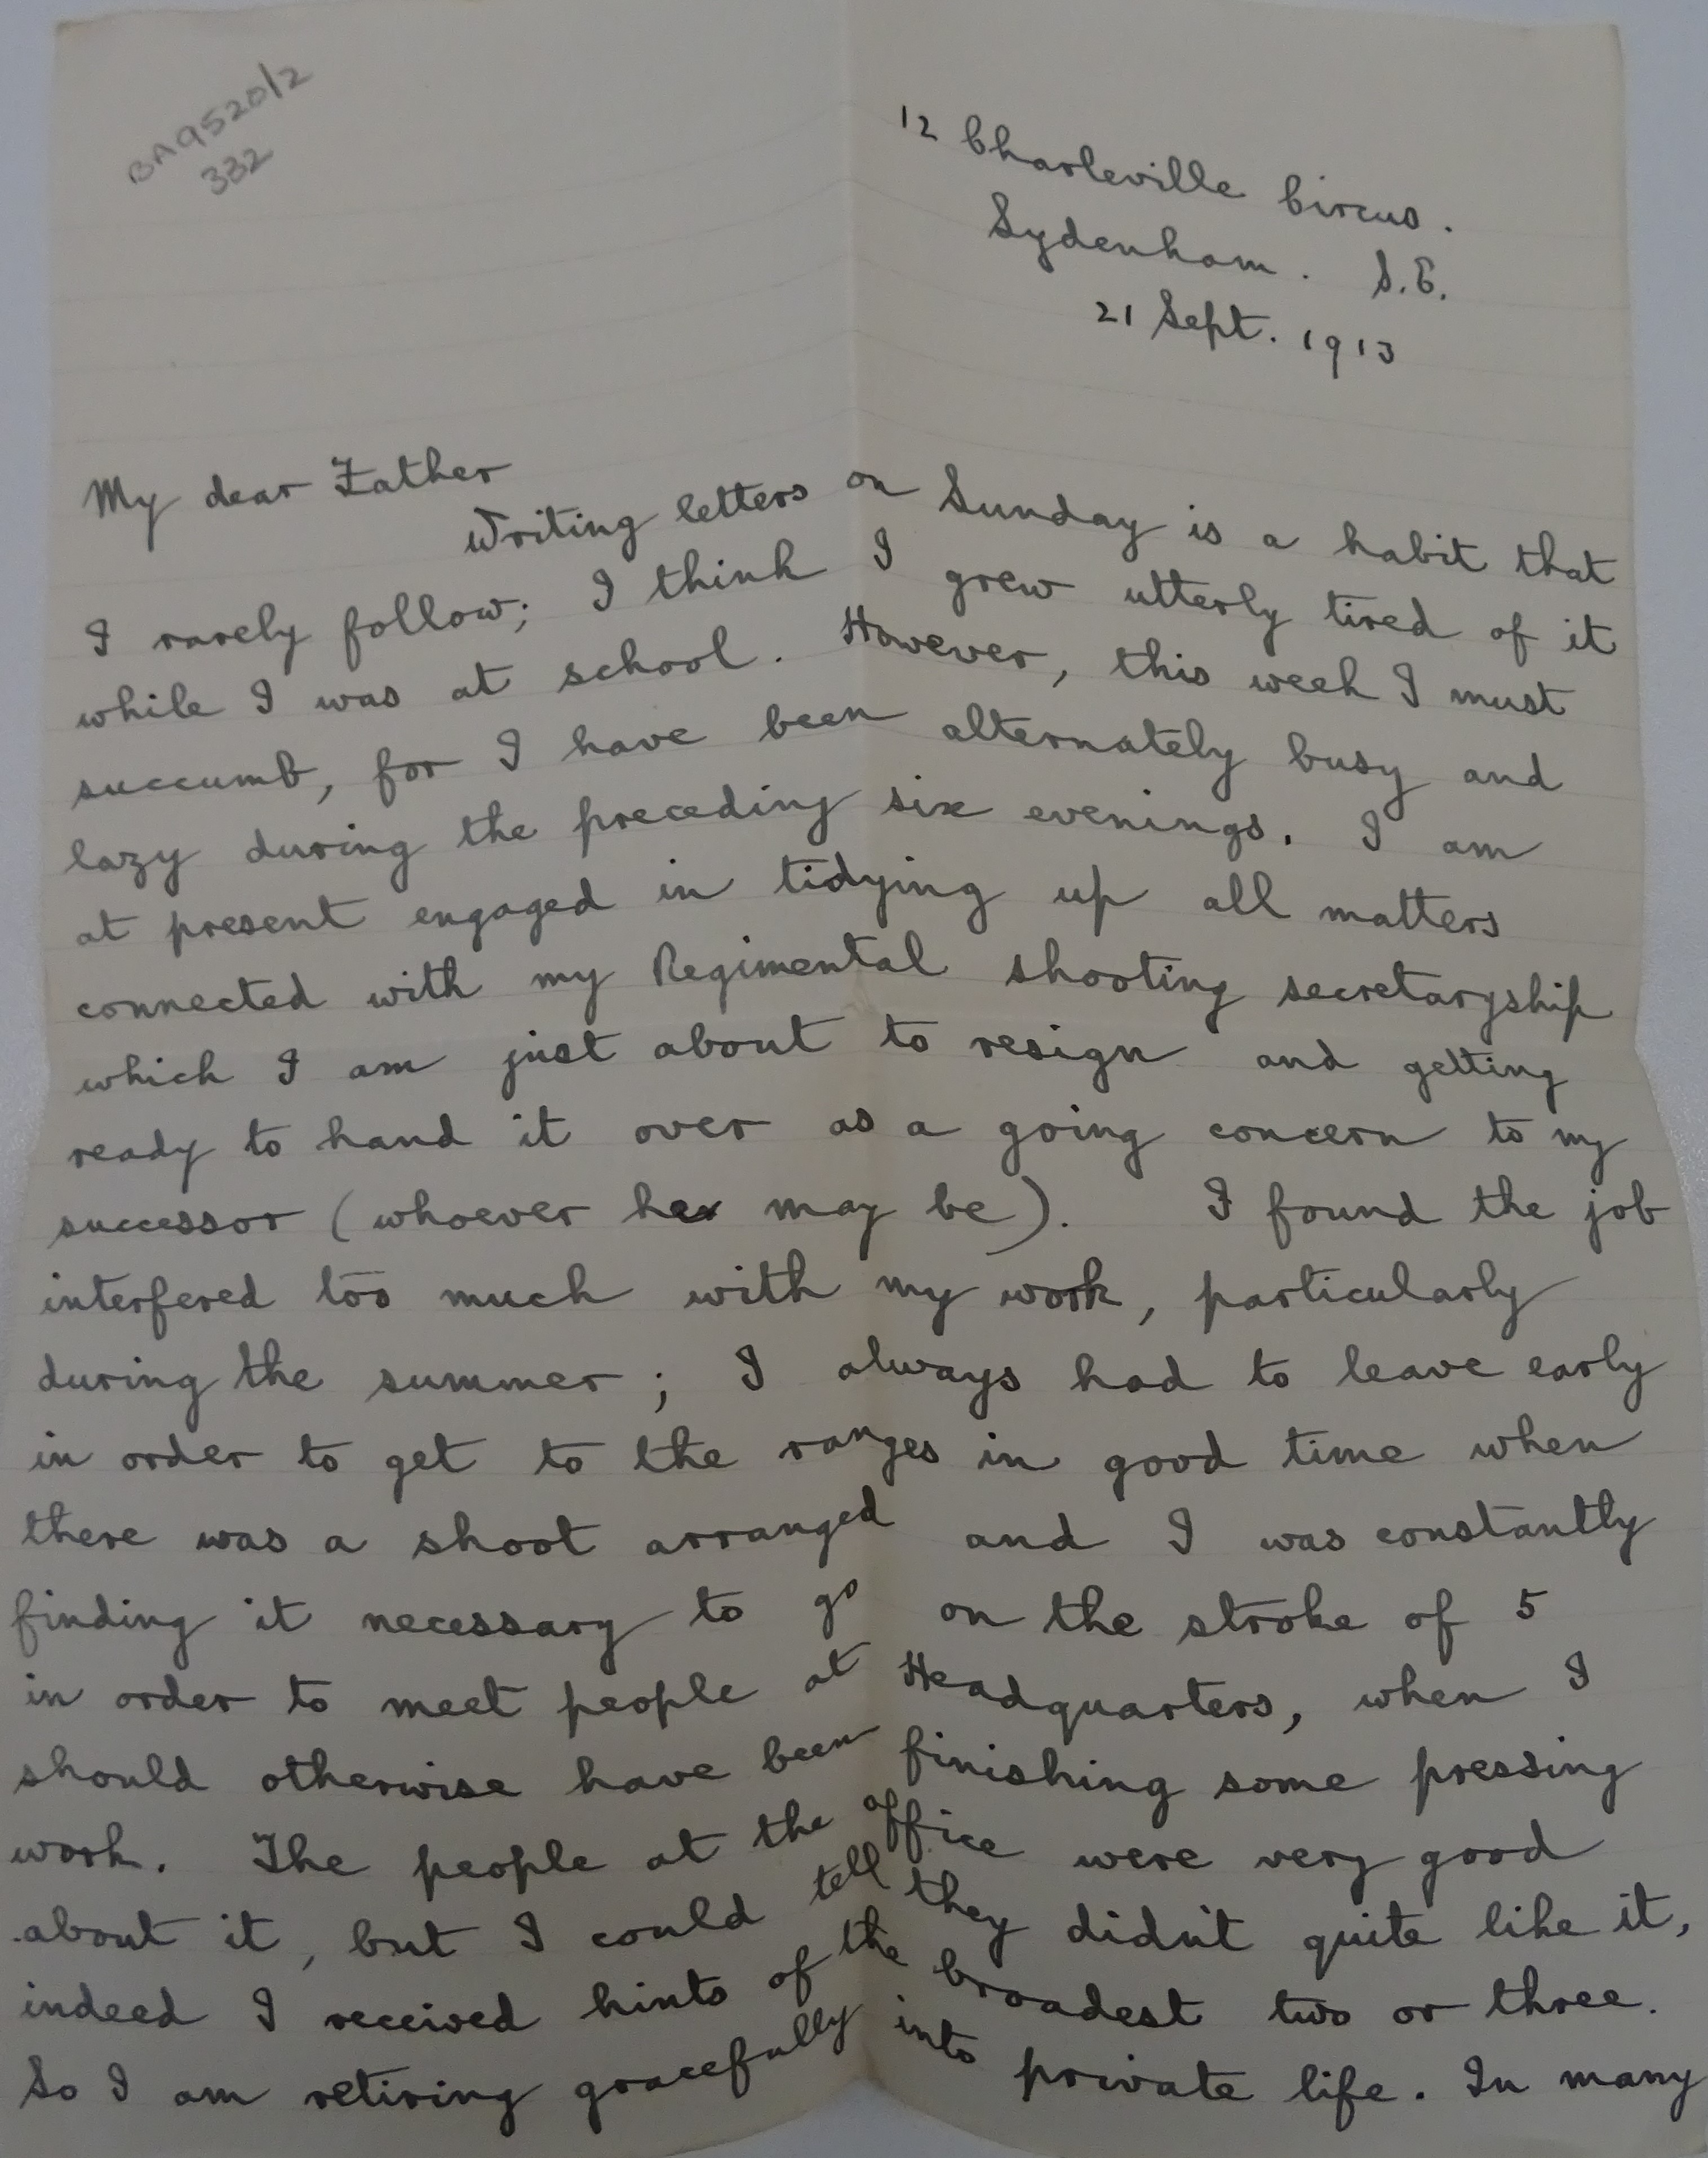 BA9520/2
332
12 Charleville Circus.
Sydenham. S.E.
21 Sept. 1913
My dear Father
Writing letters on Sunday is a habit that
I rarely follow; I think I grew utterly tired of it
while I was at school. However, this week I must
succumb, for I have been alternately busy and
lazy during the preceding six evenings. I am
at present engaged in tidying up all matters
connected with my Regimental shooting secretaryship
which I am just about to resign and getting
ready to hand it over as a going concern to my
successor (whoever he may be). I found the job
interfered too much with my work, particularly
during the summer; I always had to leave early
in order to get to the ranges in good time when
there was a shoot arranged and I was constantly
finding it necessary to go on the stroke of 5
in order to meet people at Headquarters, when I
should otherwise have been finishing some pressing
work. The people at the office were very good
about it, but I could tell they didn't quite like it,
indeed I received hints of the broadest two or three.
So I am retiring gracefully into private life. In many